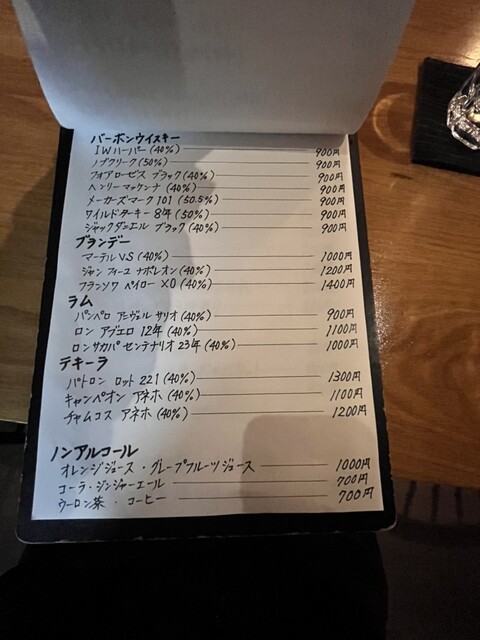 バーボンウイスキー
IWハーパー(40%) 900円
ノブクリーク(50%) 900円
フォアローゼス ブラック(40%) 900円
ヘンリーマッケンナ(40%) 900円
メーカーズマーク101 (50.5%) 900円
ワイルドターキー 8年(50%) 900円
ジャックダニエル ブラック(40%) 900円
ブランデー
マーテルVS(40%) 1000円
ジャン フィーユ ナポレオン(40%) 1200円
フランソワ ペイロー XO(40%) 1400円
ラム
パンペロ アニヴェルサリオ(40%) 900円
ロン アブエロ 12年(40%) 1100円
ロンサカパ センテナリオ 23年(40%) 1000円
テキーラ
パトロン ロット221(40%) 1300円
キャンペオン アネホ(40%) 1100円
チャムコス アネホ(40%) 1200円
ノンアルコール
オレンジジュース・グレープフルーツジュース 1000円
コーラ・ジンジャーエール 700円
ウーロン茶・コーヒー 700円